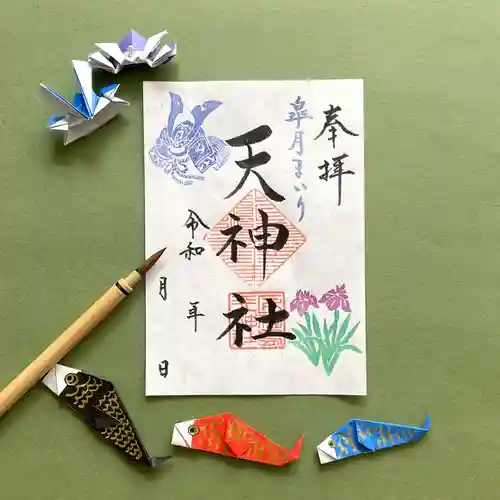 奉拝
皐月まいり
天神社
令和
年
月
日